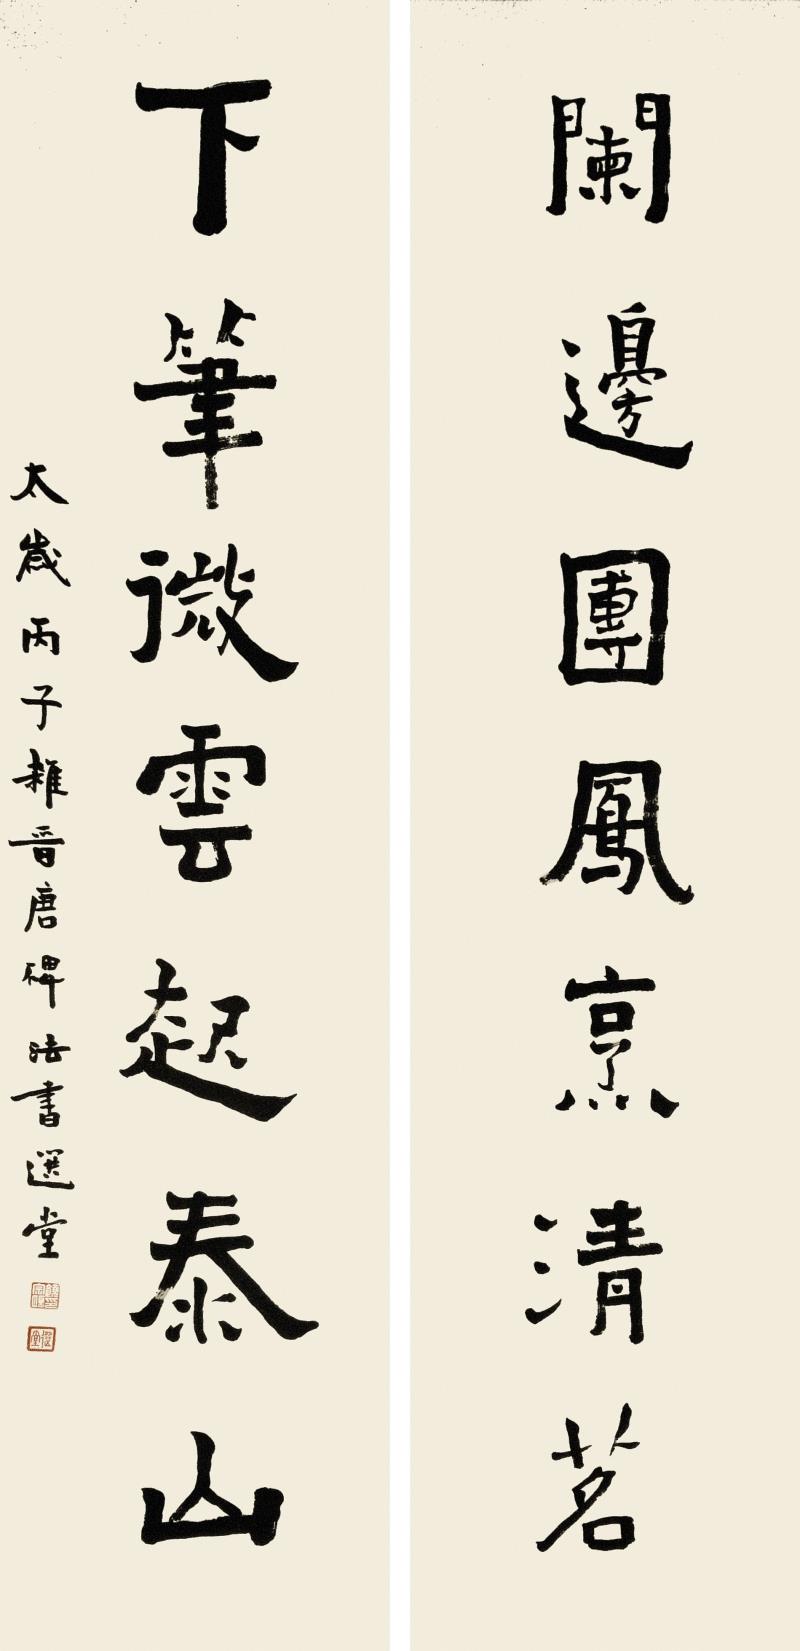 闌邊團鳳烹清茗
下筆微雲起泰山
太歲丙子雜晉唐碑法書選堂